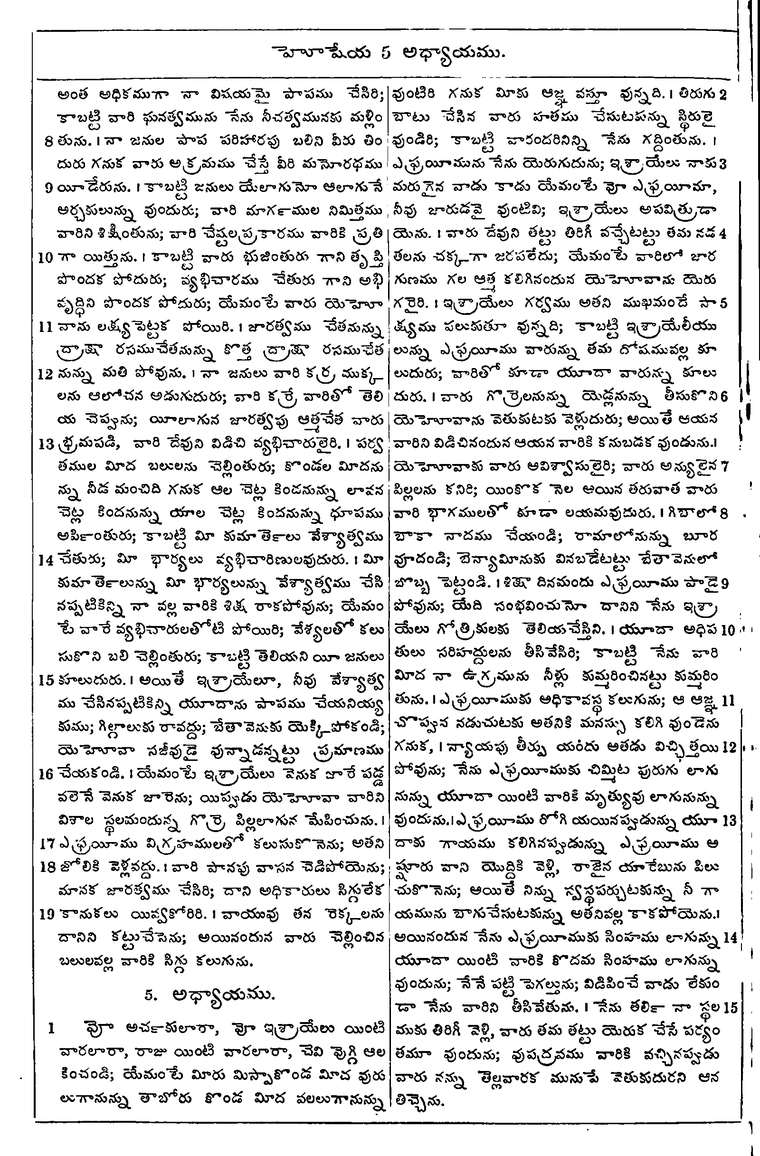 హెూషేయ 5 అధ్యాయము.
అంత అధికముగా నా విషయమై పాపము చేసిరి;
కాబట్టి వారి ఘనత్వమును నేను నీచత్వమునకు మళ్లిం
8 తును. । నా జనుల పాప పరిహారపు బలిని వీరు తిం
దురు గనుక వారు అక్రమము చేస్తే వీరి మనోరథము
9 యీడేరును. । కాబట్టి జనులు యేలాగునో ఆలాగునే
అర్చకులున్ను వుందురు; వారి మార్గముల నిమిత్తము
వారిని శిక్షింతును; వారి చేష్టల ప్రకారము వారికి ప్రతి
10 గా యిత్తును. । కాబట్టి వారు భుజింతురు గాని తృప్తి
పొందక పోదురు; వ్యభిచారము చేతురు గాని అభి
వృద్ధిని పొందక పోదురు; యేమంటే వారు యెహో
11 వాను లక్ష్యపెట్టక పోయిరి. । జారత్వము చేతనున్ను
ద్రాక్షా రసముచేతనున్ను కొత్త ద్రాక్షా రసముచేత
12 నున్ను మతి పోవును. । నా జనులు వారి కర్ర ముక్క
లను ఆలోచన అడుగుదురు; వారి కర్రే వారితో తెలి
య చెప్పును; యీలాగున జారత్వపు ఆత్మచేత వారు
13 భ్రమపడి, వారి దేవుని విడిచి వ్యభిచారులైరి. । పర్వ
తముల మీద బలులను చెల్లింతురు; కొండల మీదను
న్ను నీడ మంచిది గనుక ఆల చెట్ల కిందనున్ను లావన
చెట్ల కిందనున్ను యాల చెట్ల కిందనున్ను ధూపము
అర్పింతురు; కాబట్టి మీ కుమార్తెలు వేశ్యాత్వము
14 చేతురు; మీ భార్యలు వ్యభిచారిణులవుదురు. । మీ
కుమార్తెలున్ను మీ భార్యలున్ను వేశ్యాత్వము చేసి
నప్పటికిన్ని నా వల్ల వారికి శిక్ష రాకపోవును; యేమం
టే వారే వ్యభిచారులతోటి పోయిరి; వేశ్యలతో కలు
సుకొని బలి చెల్లింతురు; కాబట్టి తెలియని యీ జనులు
15 కూలుదురు. । అయితే ఇశ్రాయేలూ, నీవు వేశ్యాత్వ
ము చేసినప్పటికిన్ని యూదాను పాపము చేయనియ్య
కుము; గిల్గాలుకు రావద్దు; బేతావెనుకు యెక్కిపోకండి;
యెహోవా సజీవుడై వున్నాడన్నట్టు ప్రమాణము
16 చేయకండి. । యేమంటే ఇశ్రాయేలు వెనుక జారే పడ్డ
వలెనే వెనుక జారెను; యిప్పుడు యెహోవా వారిని
విశాల స్థలమందున్న గొర్రె పిల్లలాగున మేపించును. ।
17 ఎఫ్రయీము విగ్రహములతో కలుసుకొనెను; అతని
18 జోలికి వెళ్లవద్దు. । వారి పానపు వాసన చెడిపోయెను;
మానక జారత్వము చేసిరి; దాని అధికారులు సిగ్గులేక
19 కానుకలు యివ్వకోరిరి. । వాయువు తన రెక్కలను
దానిని కట్టుచేసెను; అయినందున వారు చెల్లించిన
బలులవల్ల వారికి సిగ్గు కలుగును.
5. అధ్యాయము.
1 వో అర్చకులారా, వో ఇశ్రాయేలు యింటి
వారలారా, రాజు యింటి వారలారా, చెవి వొగ్గి ఆల
కించండి; యేమంటే మీరు మిస్పాకొండ మీద వురు
లుగానున్ను తాబోరు కొండ మీద వలలుగానున్ను
వుంటిరి గనుక మీకు ఆజ్ఞ వస్తూ వున్నది. । తిరుగు 2
బాటు చేసిన వారు హతము చేసుటపన్ను స్థిరులై
వుండిరి; కాబట్టి వారందరినిన్ని నేను గద్దింతును. ।
ఎఫ్రయీమును నేను యెరుగుదును; ఇశ్రాయేలు నాకు 3
మరుగైన వాడు కాడు యేమంటే వో ఎఫ్రయీమా,
నీవు జారుడవై వుంటివి; ఇశ్రాయేలు అపవిత్రుడా
యెను. । వారు దేవుని తట్టు తిరిగి వచ్చేటట్టు తమ నడ 4
తలను చక్కగా జరపలేదు; యేమంటే వారిలో జార
గుణము గల ఆత్మ కలిగినందున యెహోవాను యెరు
గరైరి. । ఇశ్రాయేలు గర్వము అతని ముఖమందే సా 5
క్ష్యము పలుకుతూ వున్నది; కాబట్టి ఇశ్రాయేలీయు
లున్ను ఎఫ్రయీము వారున్ను తమ దోషమువల్ల కూ
లుదురు; వారితో కూడా యూదా వారున్ను కూలు
దురు. । వారు గొర్రెలనున్ను యెడ్లనున్ను తీసుకొని 6
యెహోవాను వెతుకుటకు వెళ్లుదురు; అయితే ఆయన
వారిని విడిచినందున ఆయన వారికి కనుబడక వుండును.।
యెహోవాకు వారు అవిశ్వాసులైరి; వారు అన్యులైన 7
పిల్లలను కనిరి; యింకొక నెల అయిన తరువాత వారు
వారి భాగములతో కూడా లయమవుదురు. । గిబాలో 8
బాకా నాదము చేయండి; రామాలోనున్ను బూర
వూదండి; బెన్యామీనుకు వినబడేటట్టు బేతావెనులో
బొబ్బ పెట్టండి. । శిక్షా దినమందు ఎఫ్రయీము పాడై 9
పోవును; యేది సంభవించునో దానిని నేను ఇశ్రా
యేలు గోత్రికులకు తెలియచేస్తిని. । యూదా అధిప 10
తులు సరిహద్దులను తీసివేసిరి; కాబట్టి నేను వారి
మీద నా ఉగ్రమును నీళ్లు కుమ్మరించినట్టు కుమ్మరిం
తును. । ఎఫ్రయీముకు అధికావస్థ కలుగును; ఆ ఆజ్ఞ 11
చొప్పున నడుచుటకు అతనికి మనస్సు కలిగి వుండెను
గనుక, । న్యాయపు తీర్పు యందు అతడు విచ్ఛిత్తయి 12
పోవును; నేను ఎఫ్రయీముకు చిమ్మిట పురుగు లాగు
నున్ను యూదా యింటి వారికి మృత్యువు లాగునున్ను
వుందును.। ఎఫ్రయీము రోగి యయినప్పుడున్ను యూ 13
దాకు గాయము కలిగినప్పుడున్ను ఎఫ్రయీము అ
ష్షూరు వాని యొద్దికి వెళ్లి, రాజైన యారేబును పిలు
చుకొనెను; అయితే నిన్ను స్వస్థపర్చుటకున్ను నీ గా
యమును బాగుచేసుటకున్ను అతనివల్ల కాకపోయెను.।
అయినందున నేను ఎఫ్రయీముకు సింహము లాగున్ను 14
యూదా యింటి వారికి కొదమ సింహము లాగున్ను
వుందును; నేనే పట్టి పెగల్తును; విడిపించే వాడు లేకుం
డా నేను వారిని తీసివేతును. । నేను తర్లి నా స్థల 15
ముకు తిరిగీ వెళ్లి, వారు తమ తట్టు యెరుక చేసే పర్యం
తమూ వుందును; వుపద్రవము వారికి వచ్చినప్పుడు
వారు నన్ను తెల్లవారక మునుపే వెతుకుదురని ఆన
తిచ్చెను.